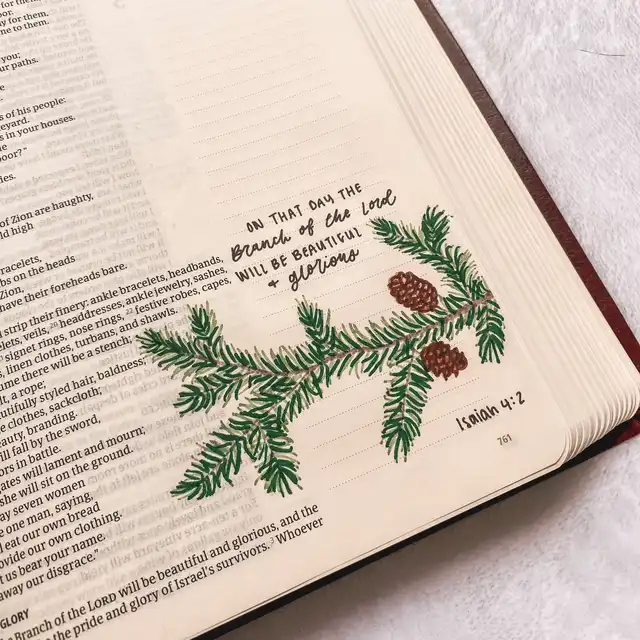 for them,
oor.
ay for them.
me to them.
you;
ur paths.
e
s of his people:
eyard.
s in your houses.
le
oor?"
ies.
of Zion are haughty,
ld high
racelets,
bs on the heads
Zion,
have their foreheads bare.
strip their finery: ankle bracelets, headbands,
lets, veils, 20 headdresses, ankle jewelry, sashes,
21 signet rings, nose rings, 22 festive robes, capes,
s, linen clothes, turbans, and shawls.
ume there will be a stench;
t, a rope;
utifully styled hair, baldness;
e clothes, sackcloth;
eauty, branding.
ill fall by the sword,
ors in battle.
gates will lament and mourn;
she will sit on the ground.
ay seven women
e one man, saying,
l eat our own bread
ovide our own clothing.
t us bear your name.
away our disgrace."
GLORY
Branch of the LORD will be beautiful and glorious, and the
e the pride and glory of Israel's survivors. 3 Whoever
ON THAT DAY THE
Branch of the Lord
WILL BE BEAUTIFUL
+ glorious
Isaiah 4:2
761